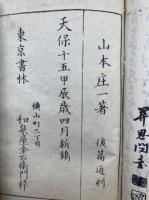 山本庄一著
後篇近刻
天保十五甲辰歳四月新鐫
東京書林
横山町三丁目
和泉屋金右衛門梓